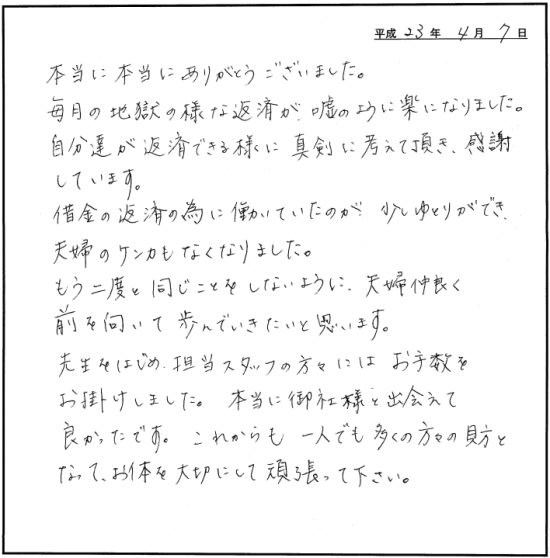 平成 23 年 4 月 7 日
本当に本当にありがとうございました。
毎月の地獄の様な返済が、嘘のように楽になりました。
自分達が返済できる様に真剣に考えて頂き、感謝
しています。
借金の返済の為に働いていたのが、少しゆとりができ、
夫婦のケンカもなくなりました。
もう二度と同じことをしないように、夫婦仲良く
前を向いて歩んでいきたいと思います。
先生をはじめ、担当スタッフの方々にはお手数を
お掛けしました。本当に御社様と出会えて
良かったです。これからも一人でも多くの方々の見方と
なって、お体を大切にして頑張って下さい。